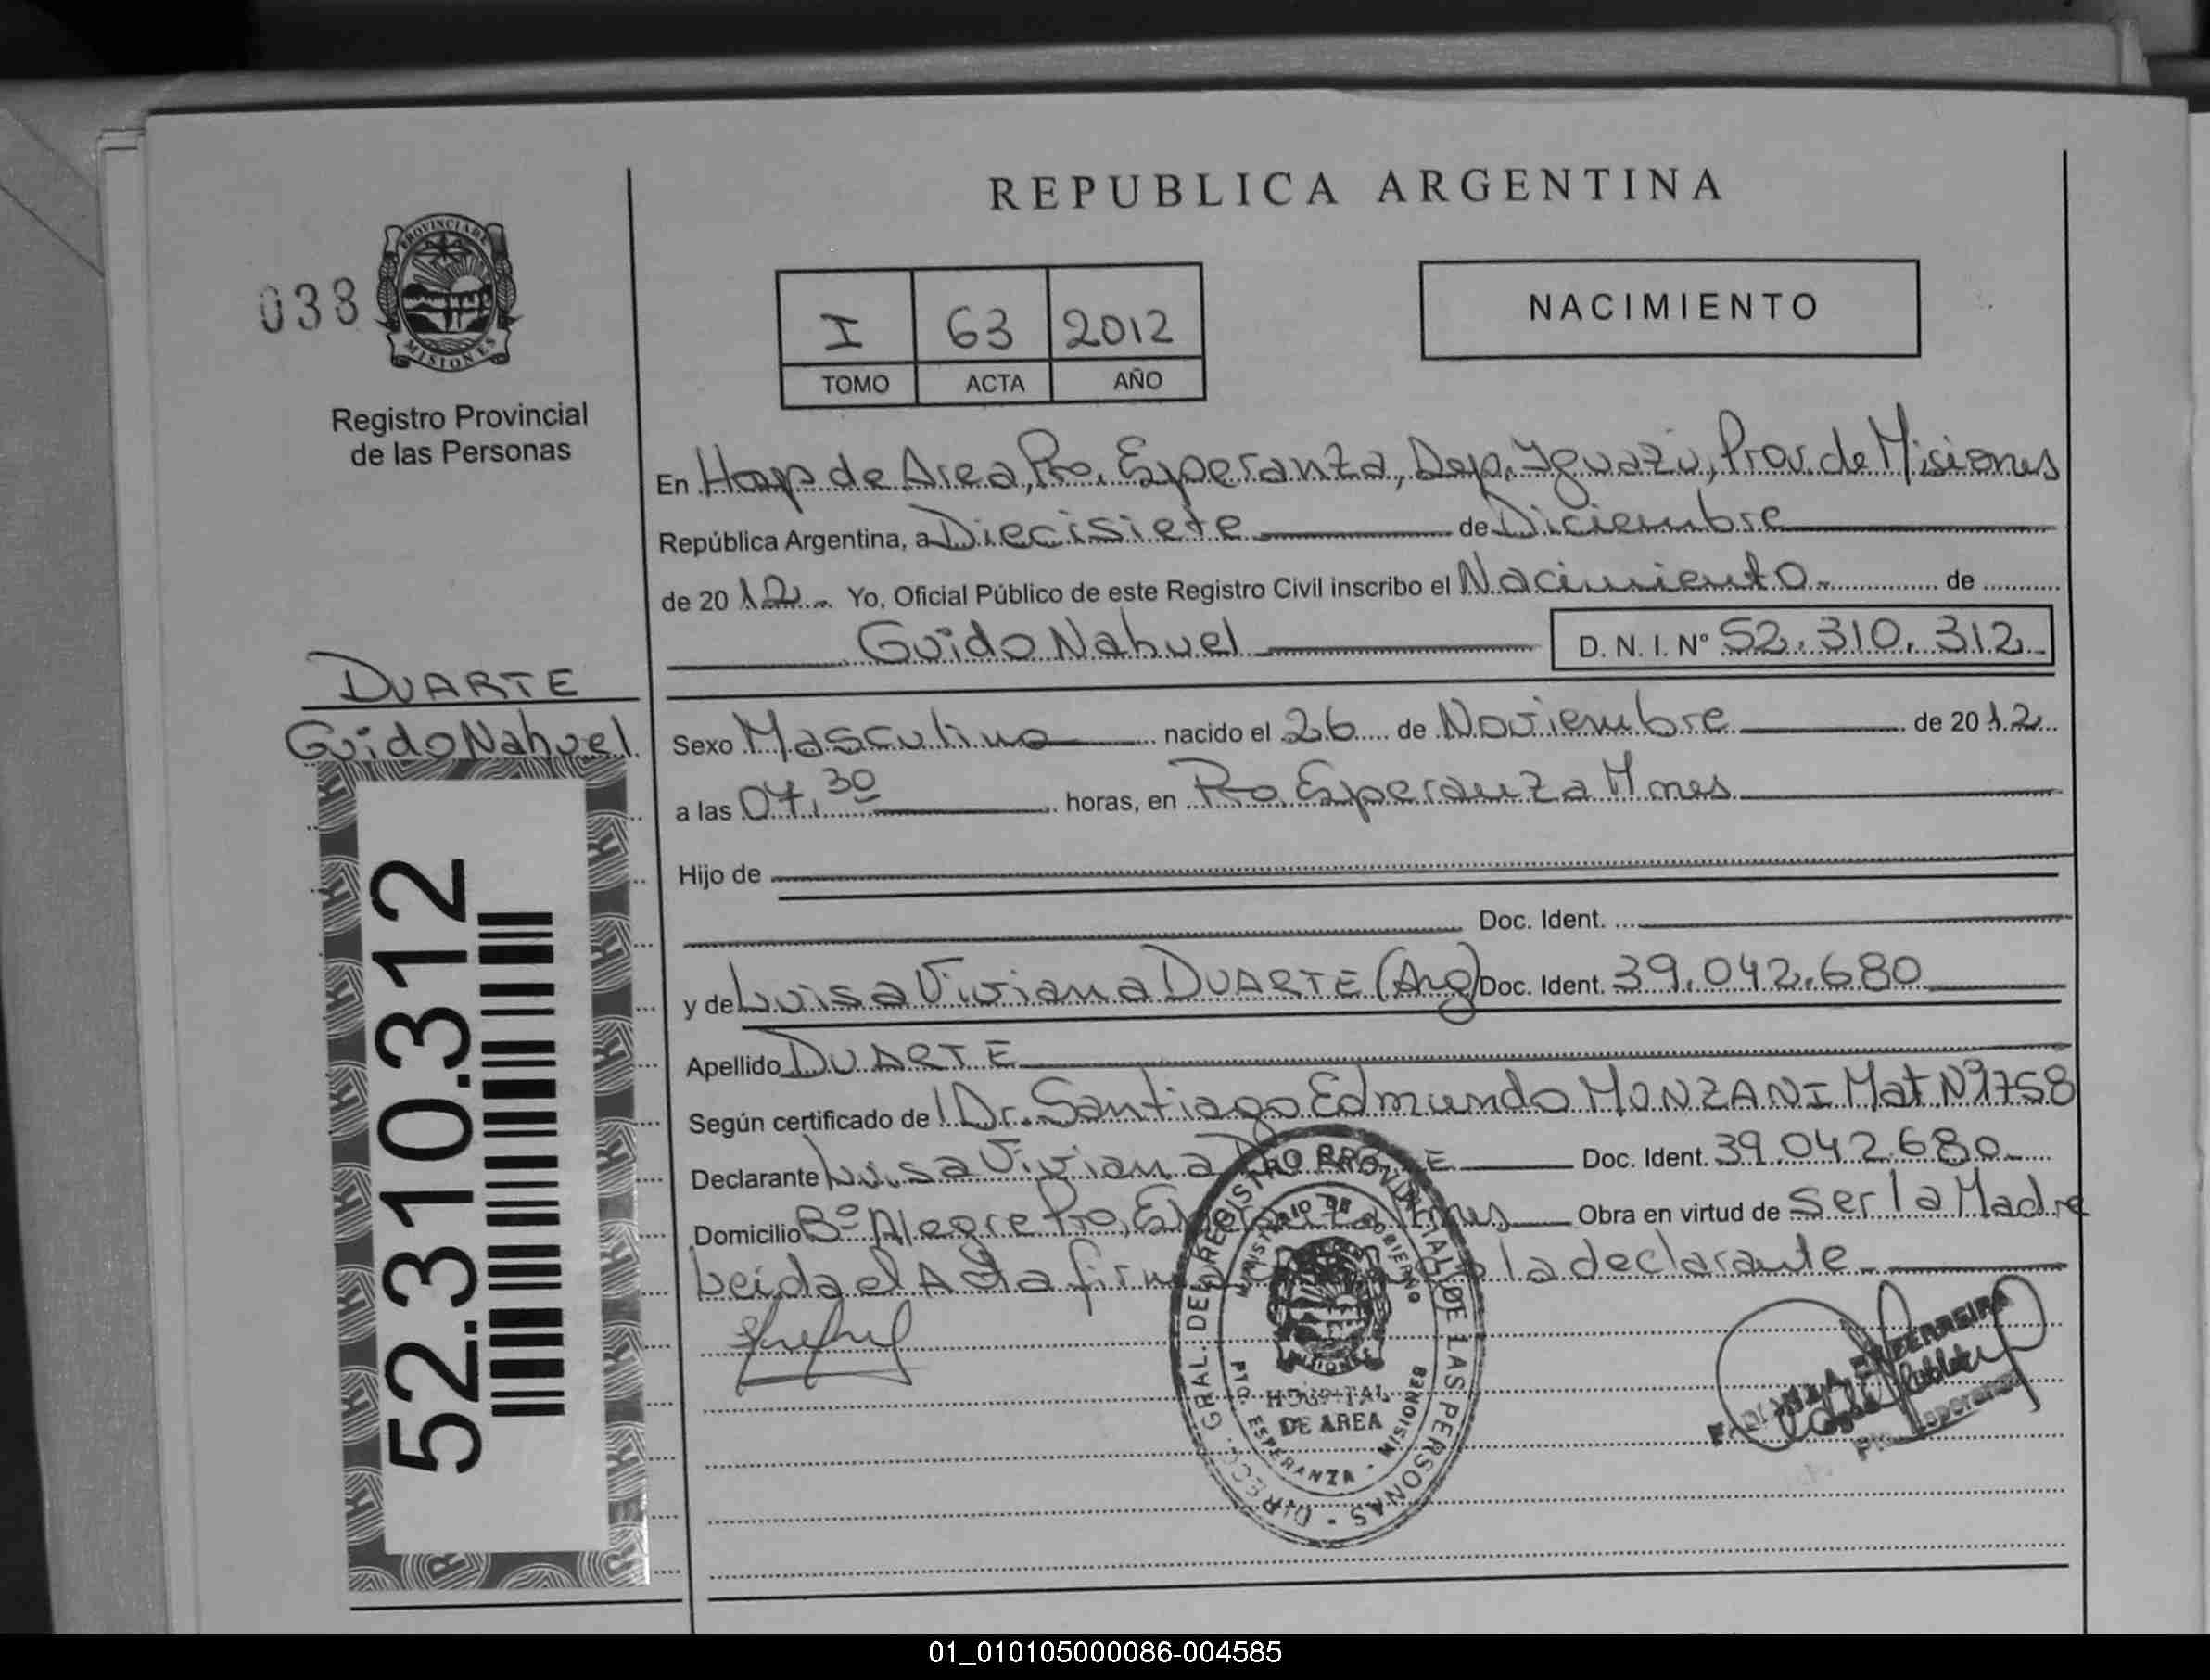 REPUBLICA ARGENTINA
038
PROVINCIA DE
MISIONES
Registro Provincial
de las Personas
I 63 2012
TOMO ACTA AÑO
NACIMIENTO
En Hosp de Area, Pto. Esperanza, Dep. Iguazú, Prov. de Misiones
República Argentina, a Diecisiete de Diciembre
de 2012. Yo, Oficial Público de este Registro Civil inscribo el Nacimiento de
Guido Nahuel D. N. I. Nº 52.310.312
DUARTE
Guido Nahuel
52.310.312
Sexo Masculino nacido el 26 de Noviembre de 2012
a las 07,30 horas, en Pto Esperanza Mnes
Hijo de
Doc. Ident.
y de Luisa Viviana DUARTE (Arg) Doc. Ident. 39.042.680
Apellido DUARTE
Según certificado de Dr. Santiago Edmundo MONZANI Mat Nº1758
Declarante Luisa Viviana Doc. Ident. 39.042.680
Domicilio Bº Alegre Pto, Esperanza Mnes Obra en virtud de Ser la Madre
Leida el Acta la declarante
DIRECC. GRAL. DEL REGISTRO PROVINCIAL DE LAS PERSONAS
MINISTERIO DE GOBIERNO
MISIONES
HOSPITAL
DE AREA
PTO. ESPERANZA - MISIONES
FERREIRA
Esperanza
01_010105000086-004585